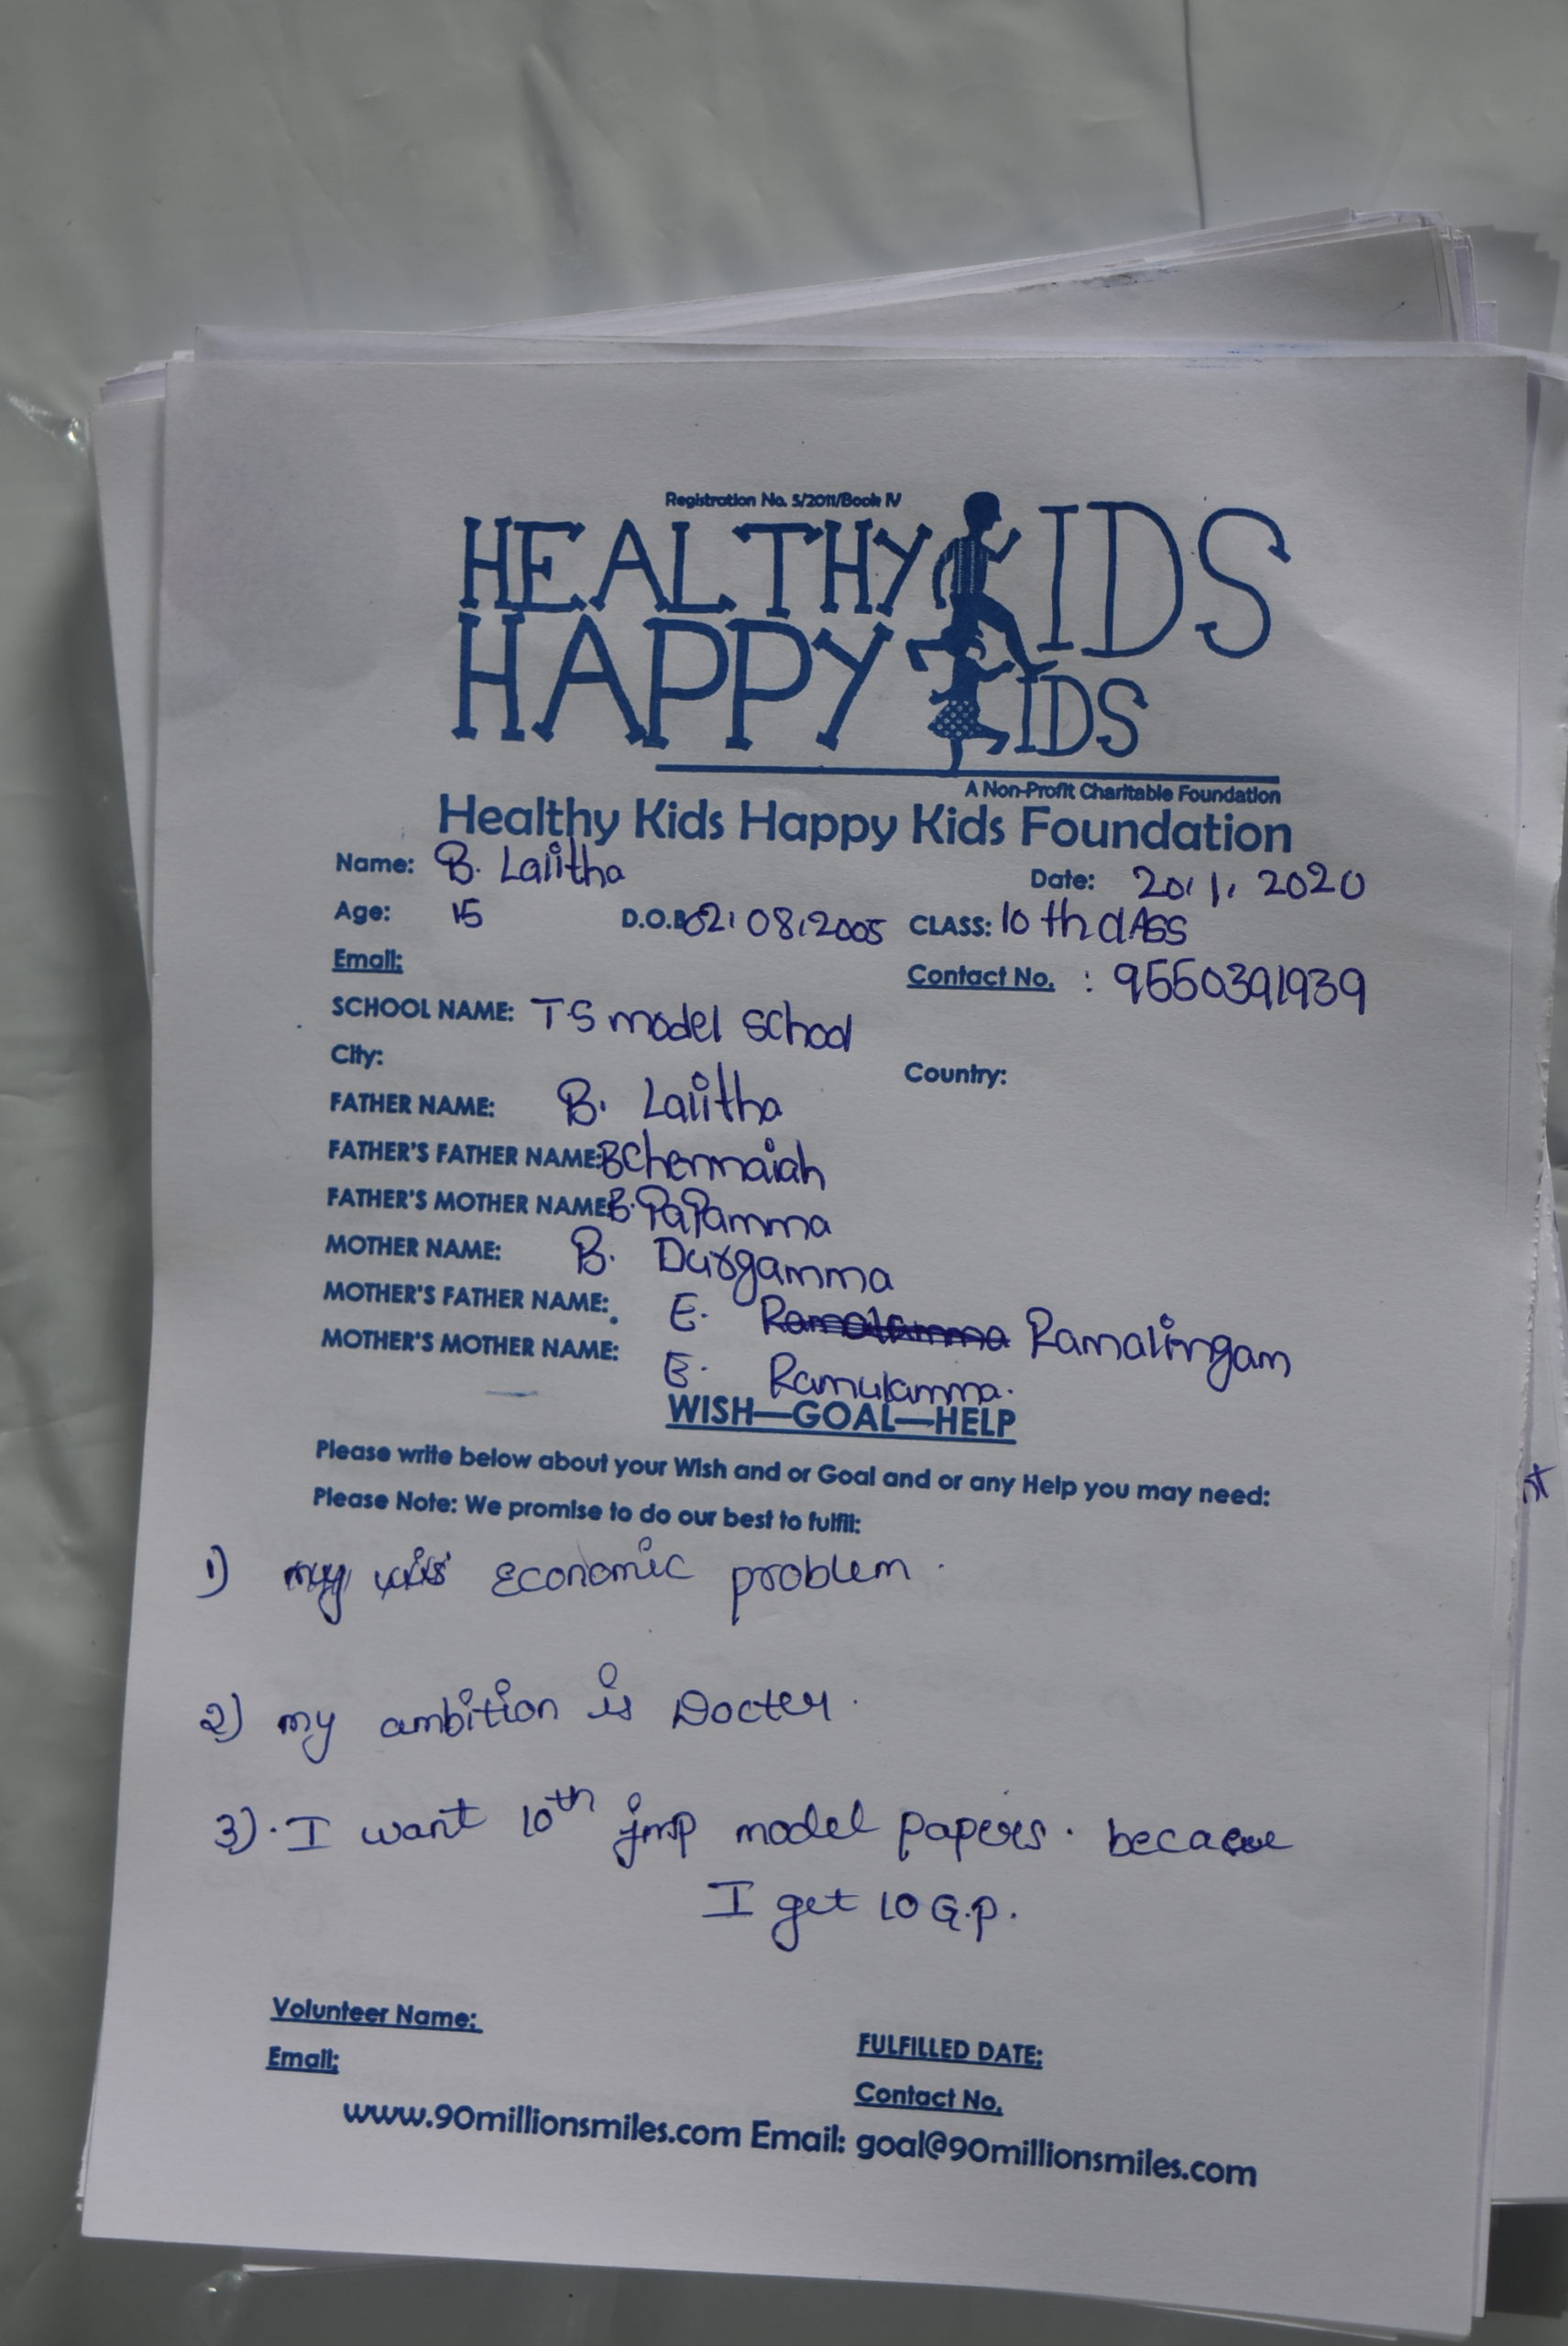 Registration No. 5/2011/Book IV
HEALTHY KIDS
HAPPY KIDS
A Non-Profit Charitable Foundation
Healthy Kids Happy Kids Foundation
Name: B. Lalitha Date: 20.1.2020
Age: 15 D.O.B 02.08.2005 CLASS: 10 th clASS
Email: Contact No. : 9550391939
SCHOOL NAME: T.S model school
City: Country:
FATHER NAME: B. Lalitha
FATHER'S FATHER NAME: B Chennaiah
FATHER'S MOTHER NAME: B. PaPamma
MOTHER NAME: B. Durgamma
MOTHER'S FATHER NAME: E. Ramalingam
MOTHER'S MOTHER NAME: E. Ramulamma.
WISH—GOAL—HELP
Please write below about your Wish and or Goal and or any Help you may need:
Please Note: We promise to do our best to fulfil:
1) my Economic problem.
2) my ambition is Docter.
3). I want 10th imp model papers. because
I get 10 G.p.
Volunteer Name: FULFILLED DATE:
Email: Contact No.
www.90millionsmiles.com Email: goal@90millionsmiles.com